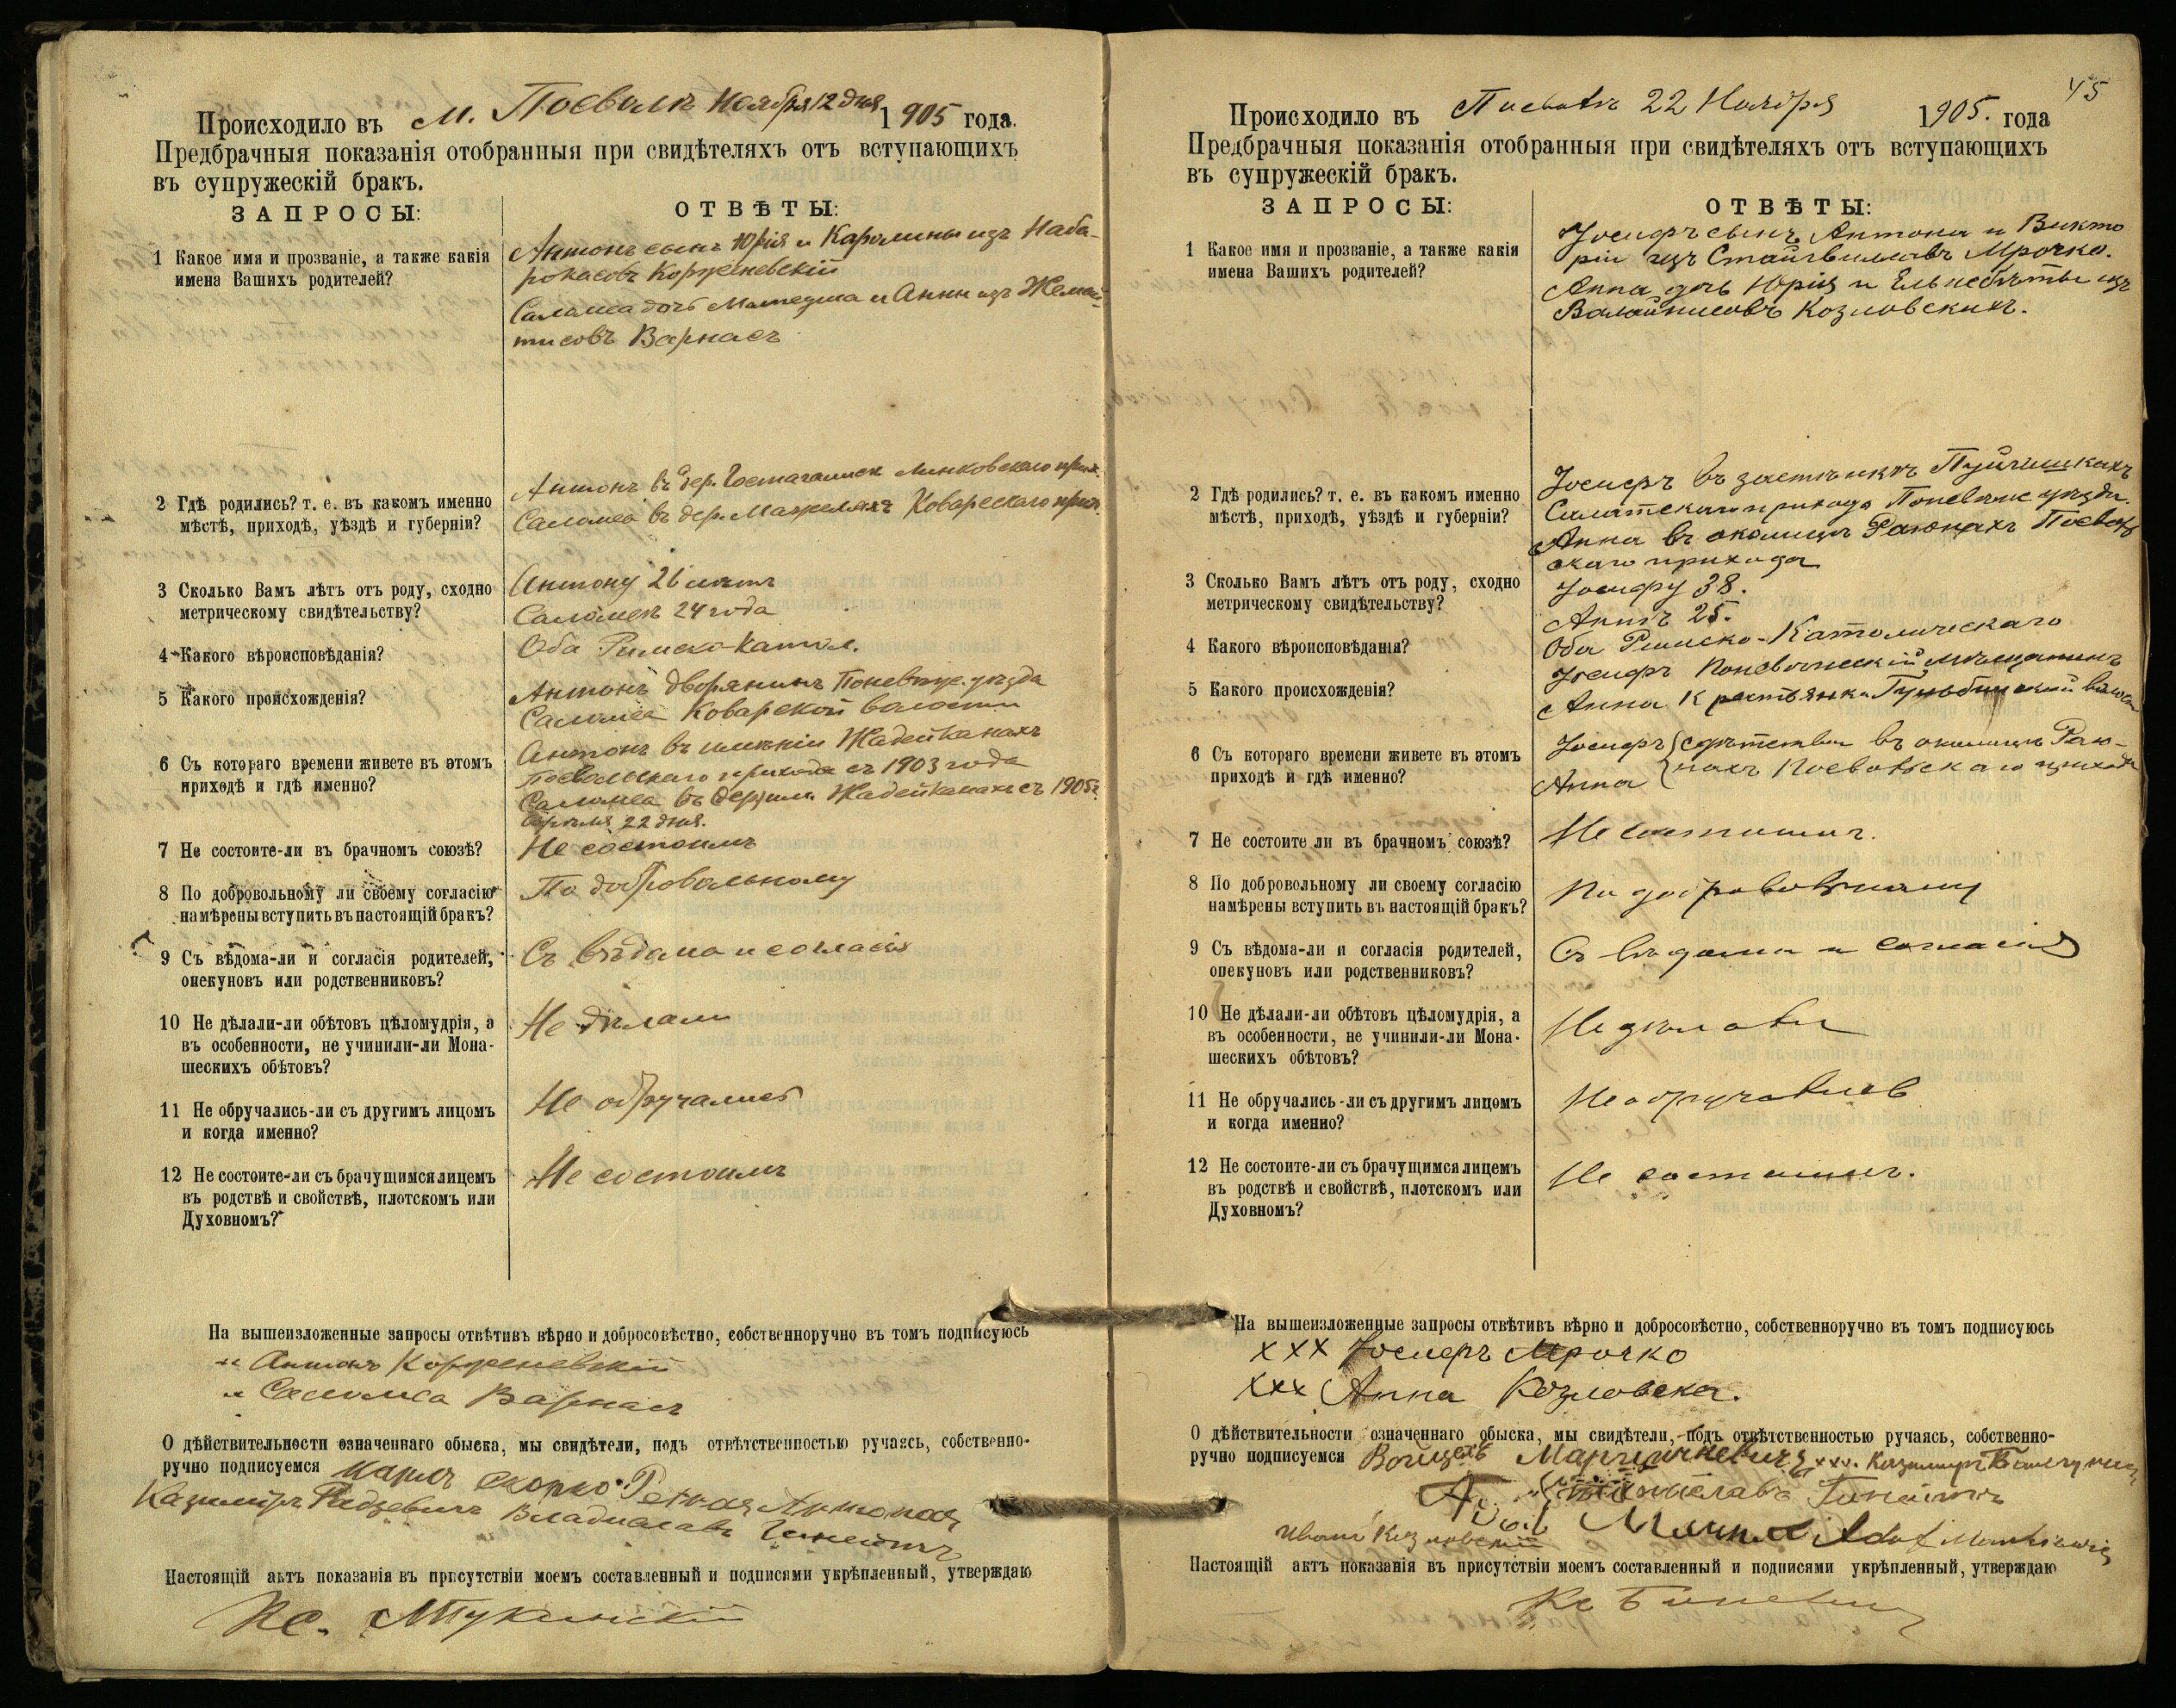 Происходило въ м. Поеволъ Ноября 12 дня 1905 года.
Предбрачныя показанія отобранныя при свидѣтеляхъ отъ вступающихъ
въ супружескій бракъ.
ЗАПРОСЫ:
ОТВѢТЫ:
1 Какое имя и прозваніе, а также какія
имена Вашихъ родителей?
Антонъ сынъ Юрія и Каролины изъ Наба-
рокасовъ Корженевскій
Саломея дочь Матеуша и Анны изъ Жемай-
тисовъ Варнасъ
2 Гдѣ родились? т. е. въ какомъ именно
мѣстѣ, приходѣ, уѣздѣ и губерніи?
Антонъ въ дер. Линковскаго прих.
Саломея въ дер. Коварскаго прих.
3 Сколько Вамъ лѣтъ отъ роду, сходно
метрическому свидѣтельству?
Антону 26 лѣтъ
Саломеѣ 24 года
4 Какого вѣроисповѣданія?
Оба Римско-катол.
5 Какого происхожденія?
Антонъ дворянинъ Поневѣж. уѣзда
Саломея Коварской волости
6 Съ котораго времени живете въ этомъ
приходѣ и гдѣ именно?
Антонъ въ имѣніи Жадейканахъ
Поевольскаго прихода съ 1903 года
Саломея въ Жадейканахъ съ 1905 г.
22 дня.
7 Не состоите-ли въ брачномъ союзѣ?
Не состоимъ
8 По добровольному ли своему согласію
намѣрены вступить въ настоящій бракъ?
По добровольному
9 Съ вѣдома-ли и согласія родителей,
опекуновъ или родственниковъ?
Съ вѣдома и согласія
10 Не дѣлали-ли обѣтовъ цѣломудрія, а
въ особенности, не учинили-ли Мона-
шескихъ обѣтовъ?
Не дѣлали
11 Не обручались-ли съ другимъ лицомъ
и когда именно?
Не обручались
12 Не состоите-ли съ брачущимся лицемъ
въ родствѣ и свойствѣ, плотскомъ или
Духовномъ?
Не состоимъ
На вышеизложенные запросы отвѣтивъ вѣрно и добросовѣстно, собственноручно въ томъ подписуюсь
Антонъ Корженевскій
Саломея Варнасъ
О дѣйствительности означеннаго обыска, мы свидѣтели, подъ отвѣтственностью ручаясь, собственно-
ручно подписуемся Карлъ
Казимиръ Радзевичъ Владиславъ
Настоящій актъ показанія въ присутствіи моемъ составленный и подписями укрѣпленный, утверждаю
Кс.
45
Происходило въ Поеволъ 22 Ноября 1905. года
Предбрачныя показанія отобранныя при свидѣтеляхъ отъ вступающихъ
въ супружескій бракъ.
ЗАПРОСЫ:
ОТВѢТЫ:
1 Какое имя и прозваніе, а также какія
имена Вашихъ родителей?
Іосифъ сынъ Антона и Викто
ріи изъ Мрочко.
Анна дочь Юрія и Ельжбѣты изъ
Козловскихъ.
2 Гдѣ родились? т. е. въ какомъ именно
мѣстѣ, приходѣ, уѣздѣ и губерніи?
Іосифъ въ застѣнкѣ
прихода Поневѣж. уѣзда.
Анна въ околицѣ Раюнахъ Поеволь
скаго прихода
3 Сколько Вамъ лѣтъ отъ роду, сходно
метрическому свидѣтельству?
Іосифу 38.
Аннѣ 25.
4 Какого вѣроисповѣданія?
Оба Римско-Католическаго
5 Какого происхожденія?
Іосифъ Поневѣжскій мѣщанинъ
Анна Крестьянка
6 Съ котораго времени живете въ этомъ
приходѣ и гдѣ именно?
Іосифъ съ дѣтства въ околицѣ Раю-
Анна нахъ Поевольскаго прихода
7 Не состоите ли въ брачномъ союзѣ?
Не состоимъ.
8 По добровольному ли своему согласію
намѣрены вступить въ настоящій бракъ?
По добровольному
9 Съ вѣдома-ли и согласія родителей,
опекуновъ или родственниковъ?
Съ вѣдома и согласія
10 Не дѣлали-ли обѣтовъ цѣломудрія, а
въ особенности, не учинили-ли Мона-
шескихъ обѣтовъ?
Не дѣлали
11 Не обручались-ли съ другимъ лицомъ
и когда именно?
Не обручались
12 Не состоите-ли съ брачущимся лицемъ
въ родствѣ и свойствѣ, плотскомъ или
Духовномъ?
Не состоимъ.
На вышеизложенные запросы отвѣтивъ вѣрно и добросовѣстно, собственноручно въ томъ подписуюсь
ххх Іосифъ Мрочко
ххх Анна Козловска.
О дѣйствительности означеннаго обыска, мы свидѣтели, подъ отвѣтственностью ручаясь, собственно-
ручно подписуемся Войцехъ ххх. Казимиръ
Иванъ Козловскій
Настоящій актъ показанія въ присутствіи моемъ составленный и подписями укрѣпленный, утверждаю
Кс